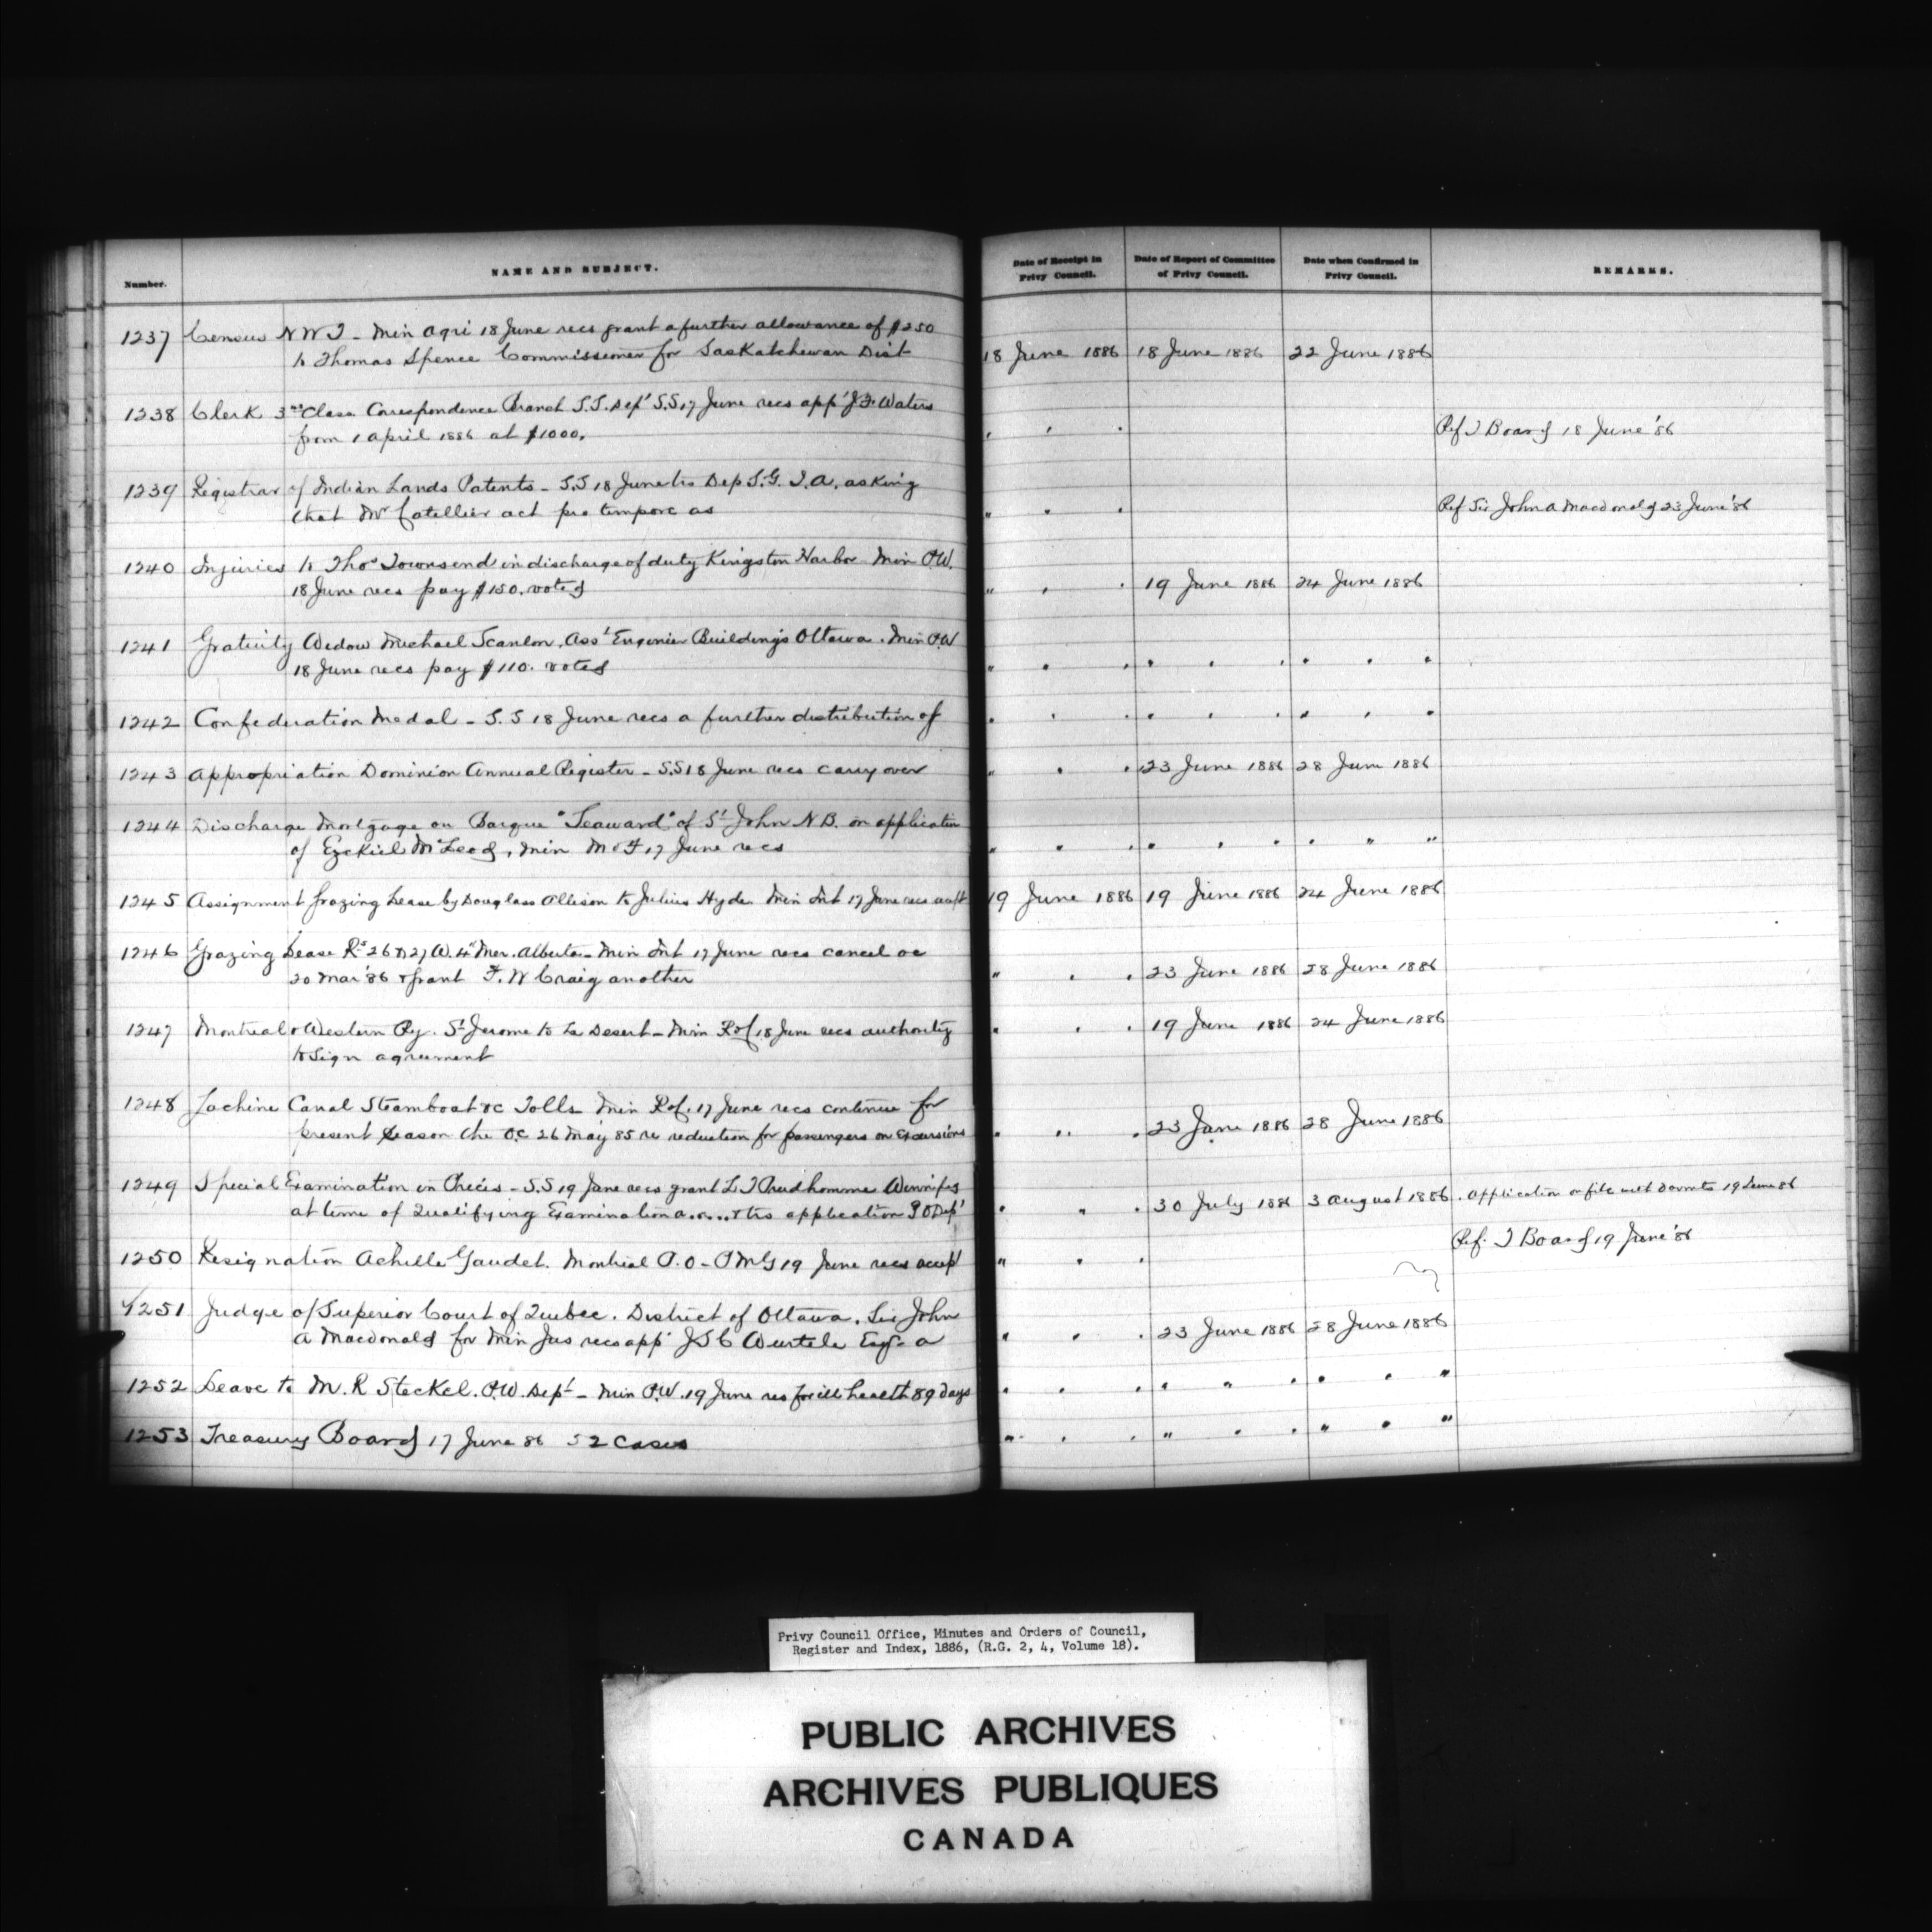 Number.
NAME AND SUBJECT.
Date of Receipt in Privy Council.
Date of Report of Committee of Privy Council.
Date when Confirmed in Privy Council.
REMARKS.
1237 Census N W T - Min Agri 18 June recs grant a further allowance of $250
to Thomas Spence Commissioner for Saskatchewan Dist 18 June 1886 18 June 1886 22 June 1886
1238 Clerk 3rd Class Correspondence Branch S.S. Dept S.S 17 June recs appt J.F. Waters
from 1 April 1886 at $1000. " " " Ref T Board 18 June '86
1239 Registrar of Indian Lands Patents - S.S 18 June Dep S.G. I.A. asking
that Mr Catellier act pro tempore as " " " Ref Sir John A Macdonald 23 June '86
1240 Injuries to Thos Townsend in discharge of duty Kingston Harbor Min P.W.
18 June recs pay $150. voted " " " 19 June 1886 24 June 1886
1241 Gratuity Widow Michael Scanlon, Asst Enginier Buildings Ottawa. Min P.W
18 June recs pay $110. voted " " " " " " " " "
1242 Confederation Medal - S.S 18 June recs a further distribution of " " " " " " " " "
1243 Appropriation Dominion Annual Register - S.S 18 June recs carry over " " " 23 June 1886 28 June 1886
1244 Discharge Mortgage on Barque "Seaward" of St John N B. on application
of Ezekiel McLeod, Min M & F 17 June recs " " " " " " " " "
1245 Assignment Grazing Lease by Douglass Allison to Julius Hyde Min Int 17 June recs accept 19 June 1886 19 June 1886 24 June 1886
1246 Grazing Lease Rs 26 & 27 W. 4th Mer. Alberta - Min Int 17 June recs cancel oc
20 Mar '86 & grant F. W Craig another " " " 23 June 1886 28 June 1886
1247 Montreal & Western Ry. St Jerome to Le Desert - Min R of 18 June recs authority " " " 19 June 1886 24 June 1886
to sign agreement
1248 Lachine Canal Steamboat &c Tolls Min R of 17 June recs continue for
present season the O.C 26 May 85 re reduction for passengers on excursions " " " 23 June 1886 28 June 1886
1249 Special Examination in Précis - S.S 19 June recs grant L J Prudhomme Winnipeg
at time of Qualifying Examination application P O Dept " " " 30 July 1886 3 August 1886 . Application on file 19 June 86
1250 Resignation Achille Gaudet. Montreal P.O - P M G 19 June recs accept " " " Ref. T Board 19 June '86
1251 Judge of Superior Court of Quebec. District of Ottawa. Sir John
A Macdonald for Min Jus recs appt J S C Wurtele Esqr a " " " 23 June 1886 28 June 1886
1252 Leave to M. R Steckel. P.W. Dept - Min P.W. 19 June res for ill health 89 days " " " " " " " " "
1253 Treasury Board 17 June 86 52 Cases " " " " " " " " "
Privy Council Office, Minutes and Orders of Council,
Register and Index, 1886, (R.G. 2, 4, Volume 18).
PUBLIC ARCHIVES
ARCHIVES PUBLIQUES
CANADA